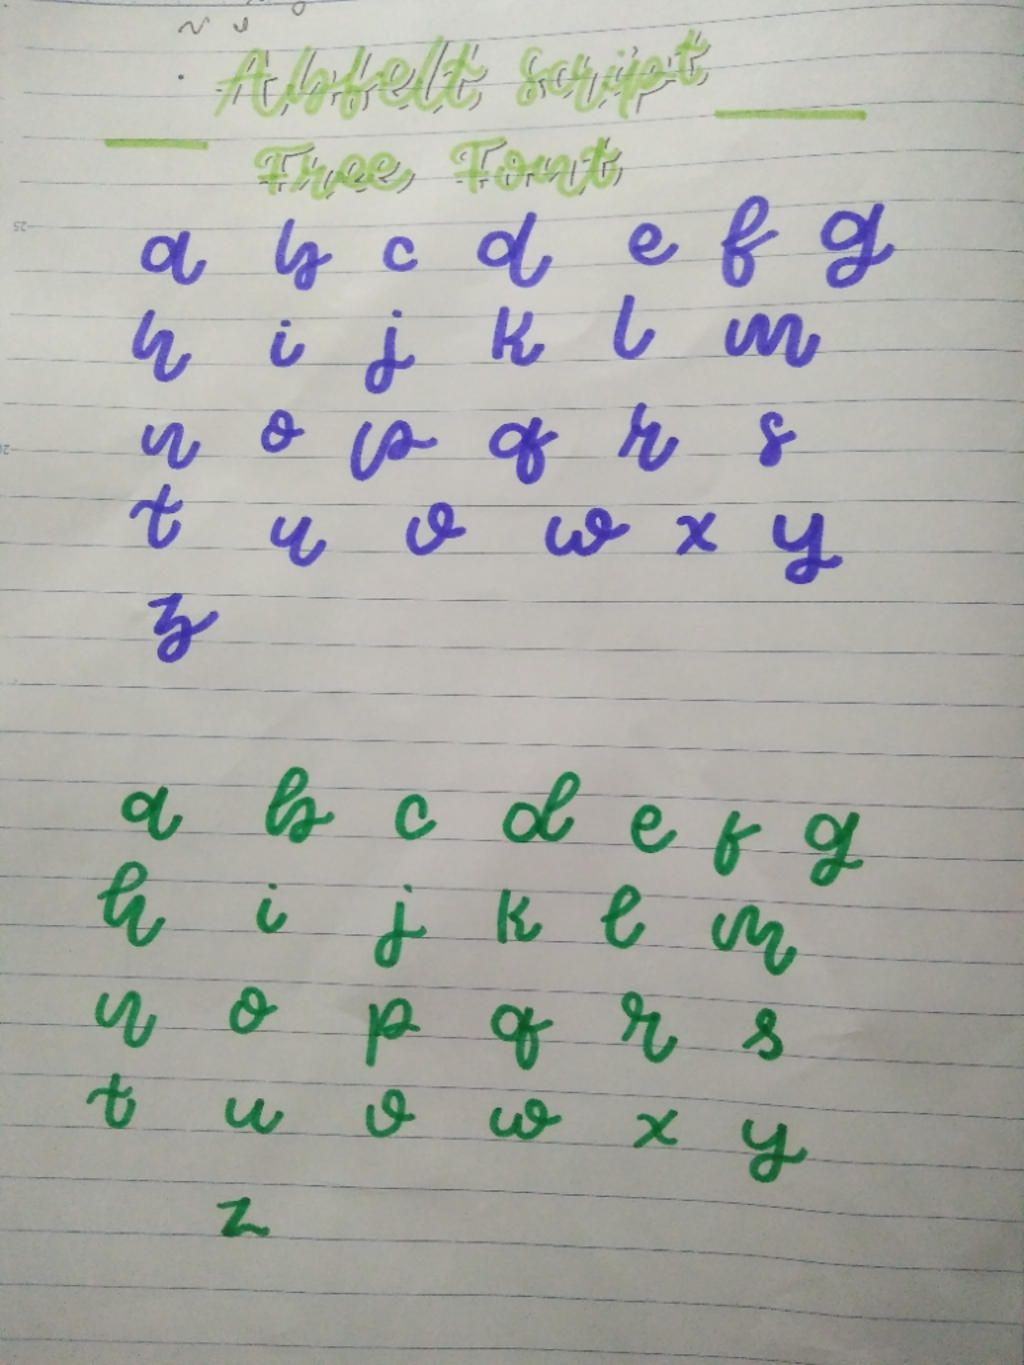 Abfelt Script
Free Font
a b c d e f g
h i j k l m
n o p q r s
t u v w x y
z
a b c d e f g
h i j k l m
n o p q r s
t u v w x y
z
25